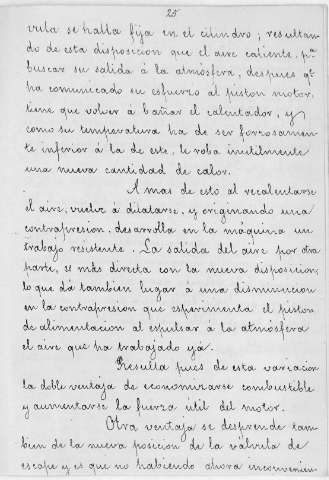 25
vula se halla fija en el cilindro; resultan-
do de esta disposicion que el aire caliente, pª
buscar su salida á la atmósfera, despues qe
ha comunicado su esfuerzo al piston motor,
tiene que volver á bañar el calentador, y
como su temperatura ha de ser forzosamen-
te inferior á la de este, le roba inutilmente
una nueva cantidad de calor.
A mas de esto al recalentarse
el aire, vuelve á dilatarse, y originando una
contrapresion, desarrolla en la máquina un
trabajo resistente. La salida del aire por otra
parte, es más directa con la nueva disposicion,
lo que dá tambien lugar á una disminucion
en la contrapresion que esperimenta el piston
de alimentacion al espulsar á la atmósfera
el aire que ha trabajado yá.
Resulta pues de esta variacion
la doble ventaja de economizarse combustible
y aumentarse la fuerza útil del motor.
Otra ventaja se desprende tam-
bien de la nueva posicion de la válvula de
escape y es que no habiendo ahora inconvenien-